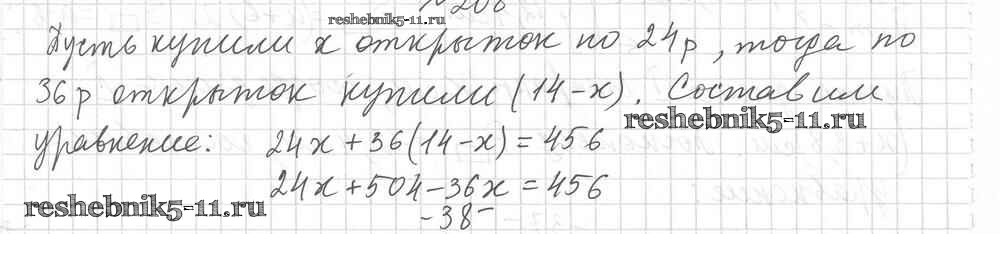 reshebnik5-11.ru
Пусть купили x открыток по 24р, тогда по
36р открыток купили (14-x). Составим
reshebnik5-11.ru
уравнение: 24x+36(14-x)=456
24x+504-36x=456
reshebnik5-11.ru
-38-